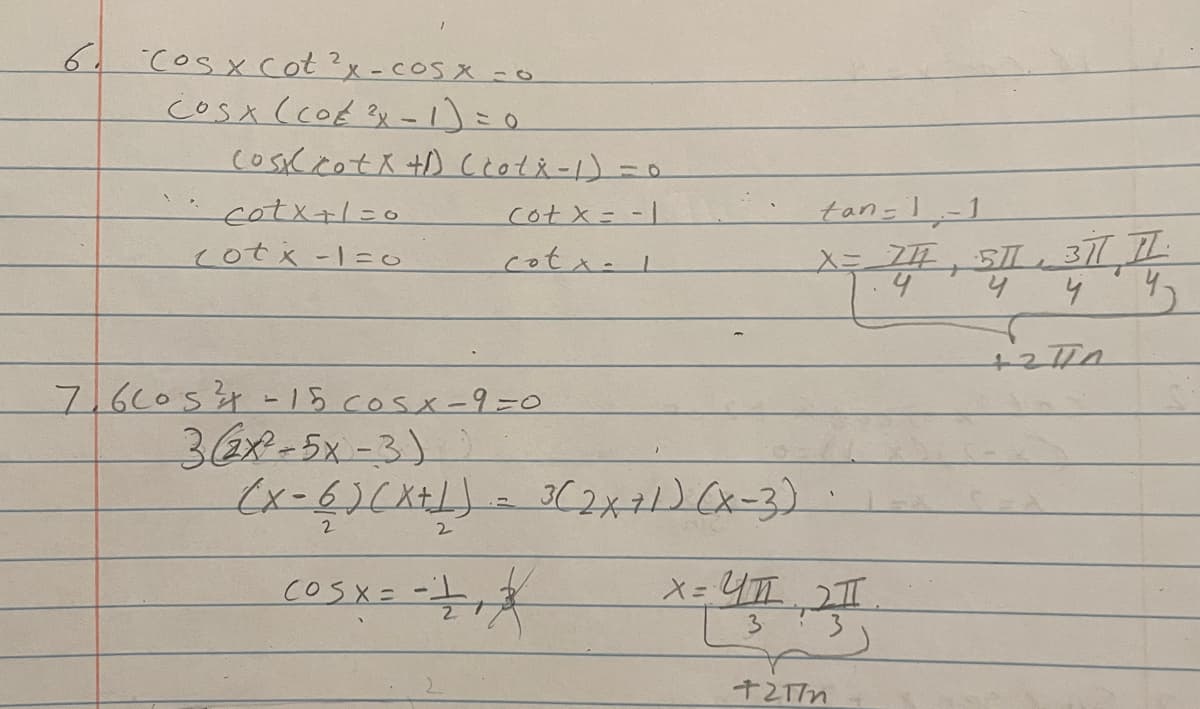 6. cosxcot²x-cosx=0
cosx(cot²x-1)=0
cosx(cotx+1)(cotx-1)=0
cotx+1=0 cotx=-1 tan=1,-1
cotx-1=0 cotx=1 x=7π/4, 5π/4, 3π/4, π/4
+2πn
7. 6cos²x-15cosx-9=0
3(2x²-5x-3)
(x-6/2)(x+1/2) = 3(2x+1)(x-3)
cosx=-1/2, 3 x=4π/3, 2π/3
+2πn